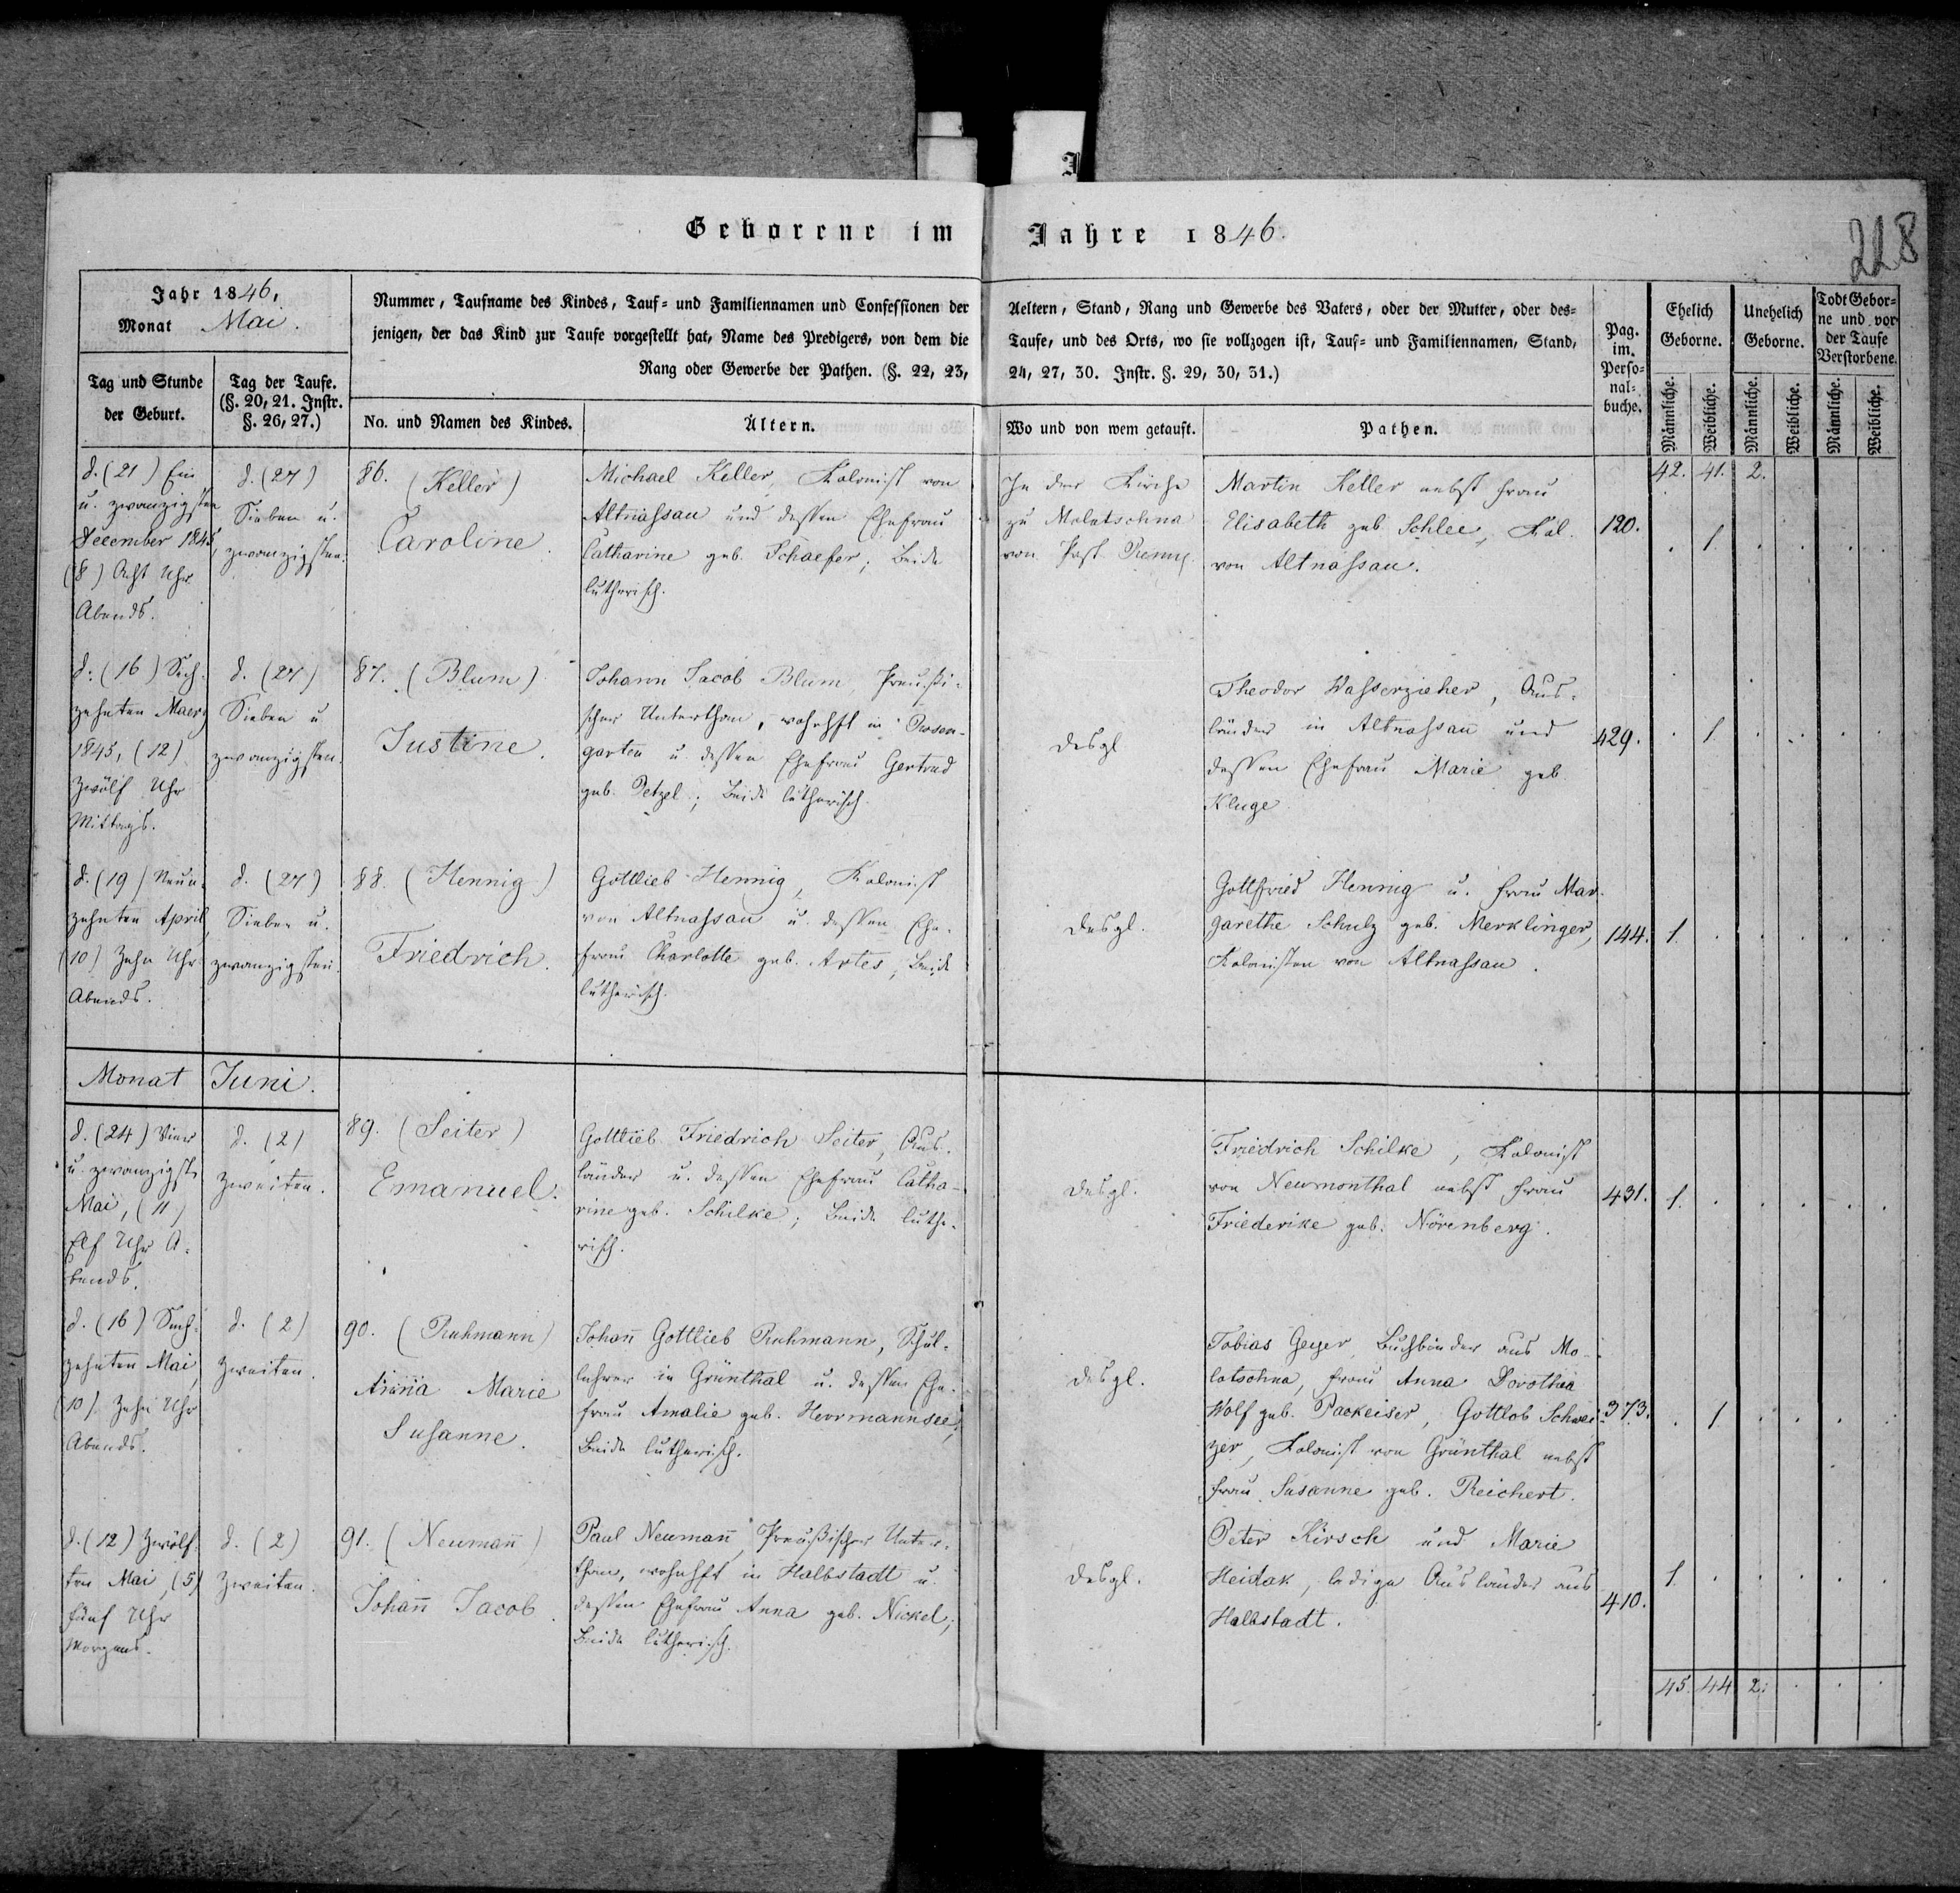 Geborene im Jahre 1846.
228
Jahr 1846,
Monat Mai.
Tag und Stunde
der Geburt.
Tag der Taufe.
(§. 20, 21. Instr.
§. 26, 27.)
Nummer, Taufname des Kindes, Tauf- und Familiennamen und Confessionen der
jenigen, der das Kind zur Taufe vorgestellt hat, Name des Predigers, von dem die
Rang oder Gewerbe der Pathen. (§. 22, 23,
No. und Namen des Kindes.
Ältern.
Aeltern, Stand, Rang und Gewerbe des Vaters, oder der Mutter, oder des-
Taufe, und des Orts, wo sie vollzogen ist, Tauf- und Familiennamen, Stand,
24, 27, 30. Instr. §. 29, 30, 31.)
Wo und von wem getauft.
Pathen.
Pag.
im
Perso-
nal-
buche.
Ehelich
Geborne.
Unehelich
Geborne.
Todt Gebor-
ne und vor
der Taufe
Verstorbene.
Männliche.
Weibliche.
Männliche.
Weibliche.
Männliche.
Weibliche.
42. 41. 2.
d. (21) Ein
u. zwanzigsten
December 1845,
(8) Acht Uhr
Abends.
d. (27)
Sieben u.
zwanzigsten.
86. (Keller)
Caroline.
Michael Keller, Kolonist von
Altnassau und dessen Ehefrau
Catharine geb. Schaefer; Beide
lutherisch.
In der Kirche
zu Molotschna
von Past.
Martin Keller nebst Frau
Elisabeth geb Schlee, Kol.
von Altnassau.
120.
. 1. . . . .
d. (16) Sech-
zehnten Maerz
1845, (12)
Zwölf Uhr
Mittags.
d. (27)
Sieben u
zwanzigsten.
87. (Blum)
Justine.
Johann Jacob Blum Preussi-
scher Unterthan, wohnhft in Rosen-
garten u. dessen Ehefrau Gertrud
geb. Petzel; Beide lutherisch.
desgl
Theodor Wasserzieher, Aus-
länder in Altnassau und
dessen Ehefrau Marie geb.
Kluge
429.
. 1. . . . .
d. (19) Neun-
zehnten April,
(10) Zehn Uhr
Abends.
d. (27)
Sieben u.
zwanzigsten.
88. (Hennig)
Friedrich.
Gottlieb Hennig, Kolonist
von Altnassau u. dessen Ehe-
frau Charlotte geb. Artes, Beide
lutherisch.
desgl.
Gottfried Hennig u. Frau Mar-
garethe Schulz geb. Merklinger,
Kolonisten von Altnassau.
144.
1. . . . . .
Monat Juni.
d. (24) Vier
u. zwanzigst
Mai, (11)
Elf Uhr A-
bends.
d. (2)
Zweiten.
89. (Seiter)
Emanuel.
Gottlieb Friedrich Seiter, Aus-
länder u. dessen Ehefrau Catha-
rine geb. Schilke; Beide luthe-
risch.
desgl.
Friedrich Schilke, Kolonist
von Neumonthal nebst Frau
Friederike geb. Nörenberg.
431.
1. . . . . .
d. (16) Sech-
zehnten Mai,
(10) Zehn Uhr
Abends.
d. (2)
Zweiten.
90. (Ruhmann)
Anna Marie
Susanne.
Johan̄ Gottlieb Ruhmann, Schul-
lehrer in Grünthal u. dessen Ehe-
frau Amalie geb. Herrmannsee;
Beide lutherisch.
desgl.
Tobias Geyer, Buchbinder aus Mo-
lotschna, Frau Anna Dorothea
Wolf geb. Packeiser, Gottlob Schwei-
zer, Kolonist von Grünthal nebst
Frau Susanne geb. Reichert.
373.
. 1. . . . .
d. (12) Zwölf-
ten Mai, (5)
Fünf Uhr
Morgens.
d. (2)
Zweiten.
91. (Neuman̄)
Johan̄ Jacob.
Paul Neuman̄, Preußischer Unter-
than, wohnhft in Halbstadt u.
dessen Ehefrau Anna geb. Nickel;
Beide lutherisch.
desgl.
Peter Kirsch und Marie
Heidak, ledige Ausländer aus
Halbstadt.
410.
1. . . . . .
45. 44 2. . . .